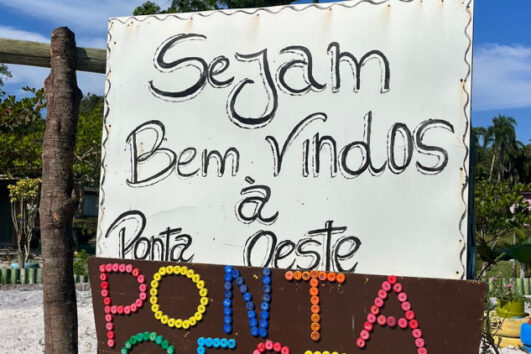 Sejam
Bem Vindos
à
Ponta Oeste
PONTA